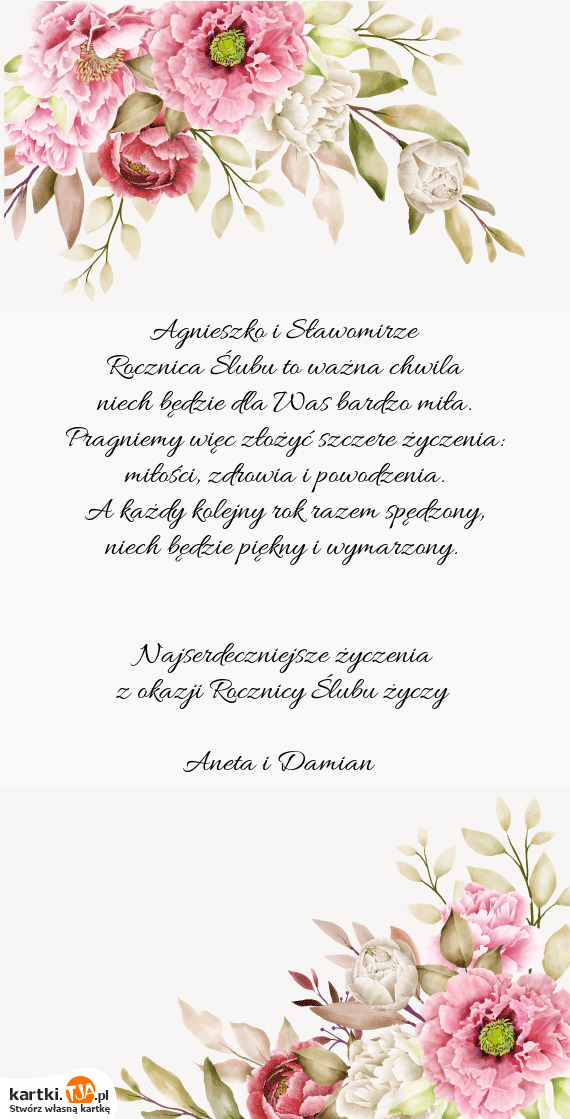 Agnieszko i Sławomirze
Rocznica Ślubu to ważna chwila
niech będzie dla Was bardzo miła.
Pragniemy więc złożyć szczere życzenia:
miłości, zdrowia i powodzenia.
A każdy kolejny rok razem spędzony,
niech będzie piękny i wymarzony.
Najserdeczniejsze życzenia
z okazji Rocznicy Ślubu życzy
Aneta i Damian
kartki.TJA.pl
Stwórz własną kartkę